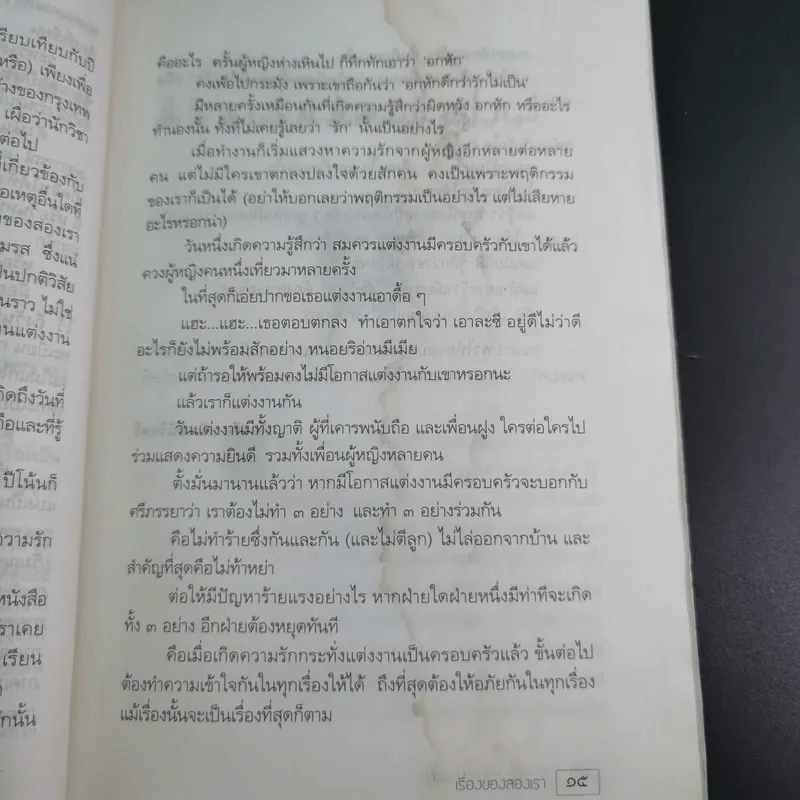 รียบเทียบกับปี
หรือ) เพียงเพื่อ
างของกรุงเทพ
เผื่อว่านักวิชา
ต่อไป
ที่เกี่ยวข้องกับ
อเหตุอื่นใดที่
ของสองเรา
มรส ซึ่งแน่
ป็นปกติวิสัย
นราว ไม่ใช่
นแต่งงาน
กิดถึงวันที่
ถือและที่รู้
ปีโน้นก็
ความรัก
หนังสือ
ราเคย
เรียน
รักนั้น
คืออะไร ครั้นผู้หญิงห่างเหินไป ก็ทึกทักเอาว่า 'อกหัก'
คงเพ้อไปกระมัง เพราะเขาถือกันว่า 'อกหักดีกว่ารักไม่เป็น'
มีหลายครั้งเหมือนกันที่เกิดความรู้สึกว่าผิดหวัง อกหัก หรืออะไร
ทำนองนั้น ทั้งที่ไม่เคยรู้เลยว่า 'รัก' นั้นเป็นอย่างไร
เมื่อทำงานก็เริ่มแสวงหาความรักจากผู้หญิงอีกหลายต่อหลาย
คน แต่ไม่มีใครเขาตกลงปลงใจด้วยสักคน คงเป็นเพราะพฤติกรรม
ของเราก็เป็นได้ (อย่าให้บอกเลยว่าพฤติกรรมเป็นอย่างไร แต่ไม่เสียหาย
อะไรหรอกน่า)
วันหนึ่งเกิดความรู้สึกว่า สมควรแต่งงานมีครอบครัวกับเขาได้แล้ว
ควงผู้หญิงคนหนึ่งเที่ยวมาหลายครั้ง
ในที่สุดก็เอ่ยปากขอเธอแต่งงานเอาดื้อ ๆ
แฮะ...แฮะ...เธอตอบตกลง ทำเอาตกใจว่า เอาละซี อยู่ดีไม่ว่าดี
อะไรก็ยังไม่พร้อมสักอย่าง หนอยริอ่านมีเมีย
แต่ถ้ารอให้พร้อมคงไม่มีโอกาสแต่งงานกับเขาหรอกนะ
แล้วเราก็แต่งงานกัน
วันแต่งงานมีทั้งญาติ ผู้ที่เคารพนับถือ และเพื่อนฝูง ใครต่อใครไป
ร่วมแสดงความยินดี รวมทั้งเพื่อนผู้หญิงหลายคน
ตั้งมั่นมานานแล้วว่า หากมีโอกาสแต่งงานมีครอบครัวจะบอกกับ
ศรีภรรยาว่า เราต้องไม่ทำ ๓ อย่าง และทำ ๓ อย่างร่วมกัน
คือไม่ทำร้ายซึ่งกันและกัน (และไม่ตีลูก) ไม่ไล่ออกจากบ้าน และ
สำคัญที่สุดคือไม่ท้าหย่า
ต่อให้มีปัญหาร้ายแรงอย่างไร หากฝ่ายใดฝ่ายหนึ่งมีท่าทีจะเกิด
ทั้ง ๓ อย่าง อีกฝ่ายต้องหยุดทันที
คือเมื่อเกิดความรักกระทั่งแต่งงานเป็นครอบครัวแล้ว ขั้นต่อไป
ต้องทำความเข้าใจกันในทุกเรื่องให้ได้ ถึงที่สุดต้องให้อภัยกันในทุกเรื่อง
แม้เรื่องนั้นจะเป็นเรื่องที่สุดก็ตาม
เรื่องของสองเรา ๑๕